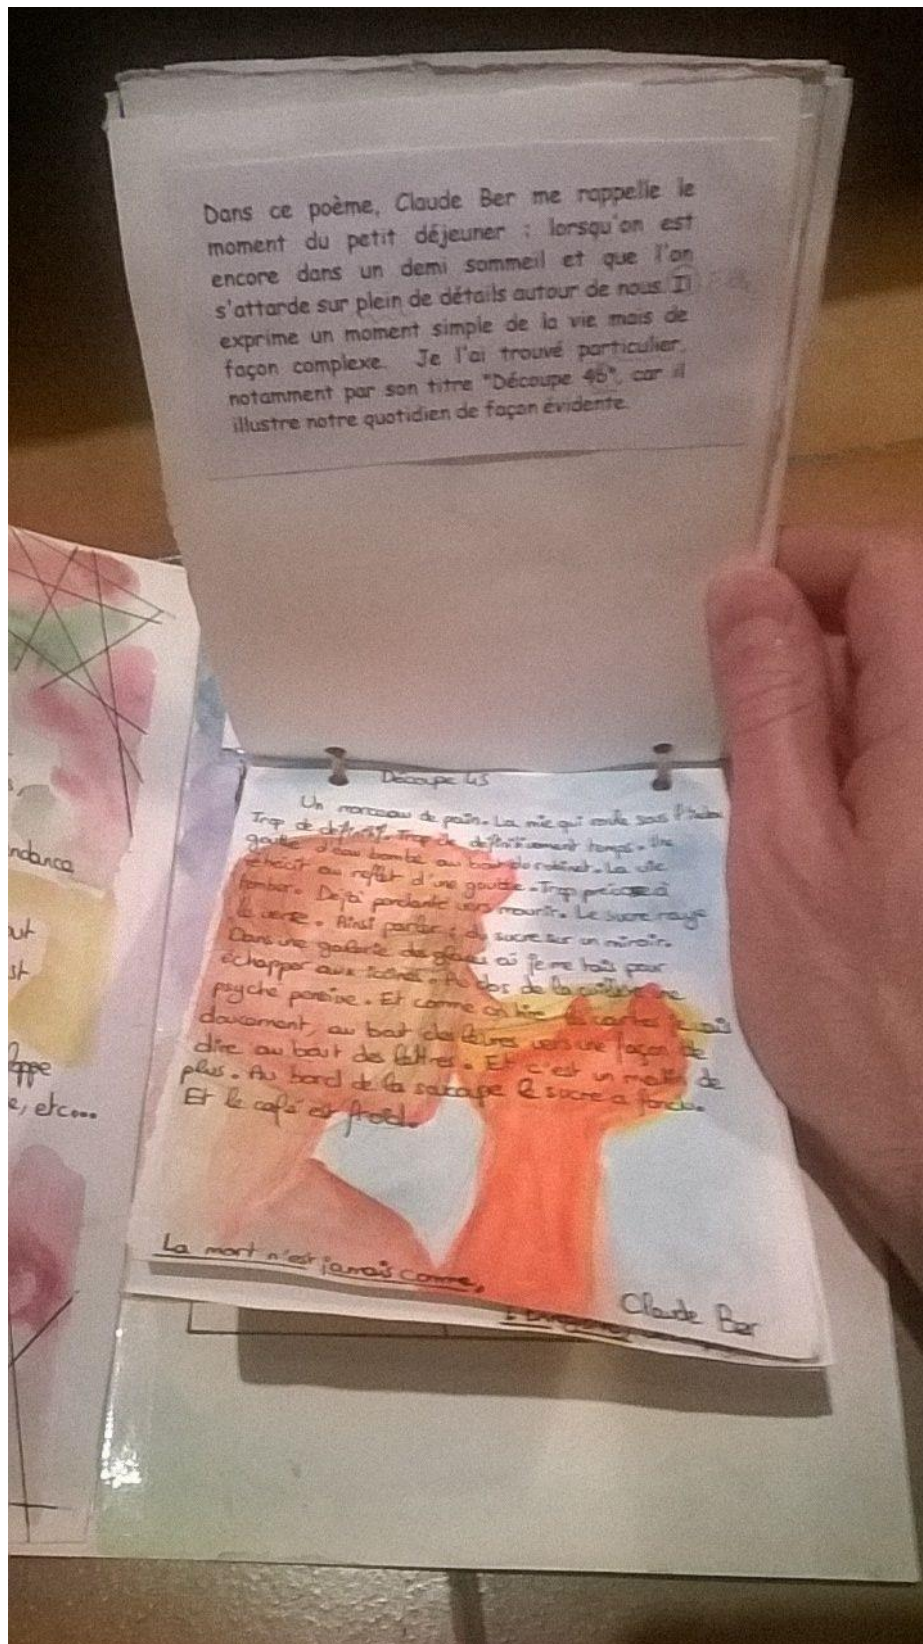 Dans ce poème, Claude Ber me rappelle le
moment du petit déjeuner : lorsqu'on est
encore dans un demi sommeil et que l'on
s'attarde sur plein de détails autour de nous. Il
exprime un moment simple de la vie mais de
façon complexe. Je l'ai trouvé particulier,
notamment par son titre "Découpe 45", car il
illustre notre quotidien de façon évidente.
Découpe 45
Un morceau de pain. La mie qui roule sous
Trop de définitif. Trop de définitivement temps. Une
goutte d'eau bombe au bout du robinet. La vie
au reflet d'une goutte. Trop précise à
tomber. Déjà penchante vers mourir. Le sucre raye
le verre. Ainsi parler : du sucre sur un miroir.
Dans une galerie des glaces où je me tais pour
échapper aux icônes. Au dos de la cuillère une
psyché pensive. Et comme on tire les cartes je vais
doucement, au bout des lèvres vers une façon de
dire au bout des lettres. Et c'est un matin de
plus. Au bord de la soucoupe le sucre a fondu.
Et le café est froid.
La mort n'est jamais comme,
Claude Ber
ndance
ut
st
oppe
e, etc...